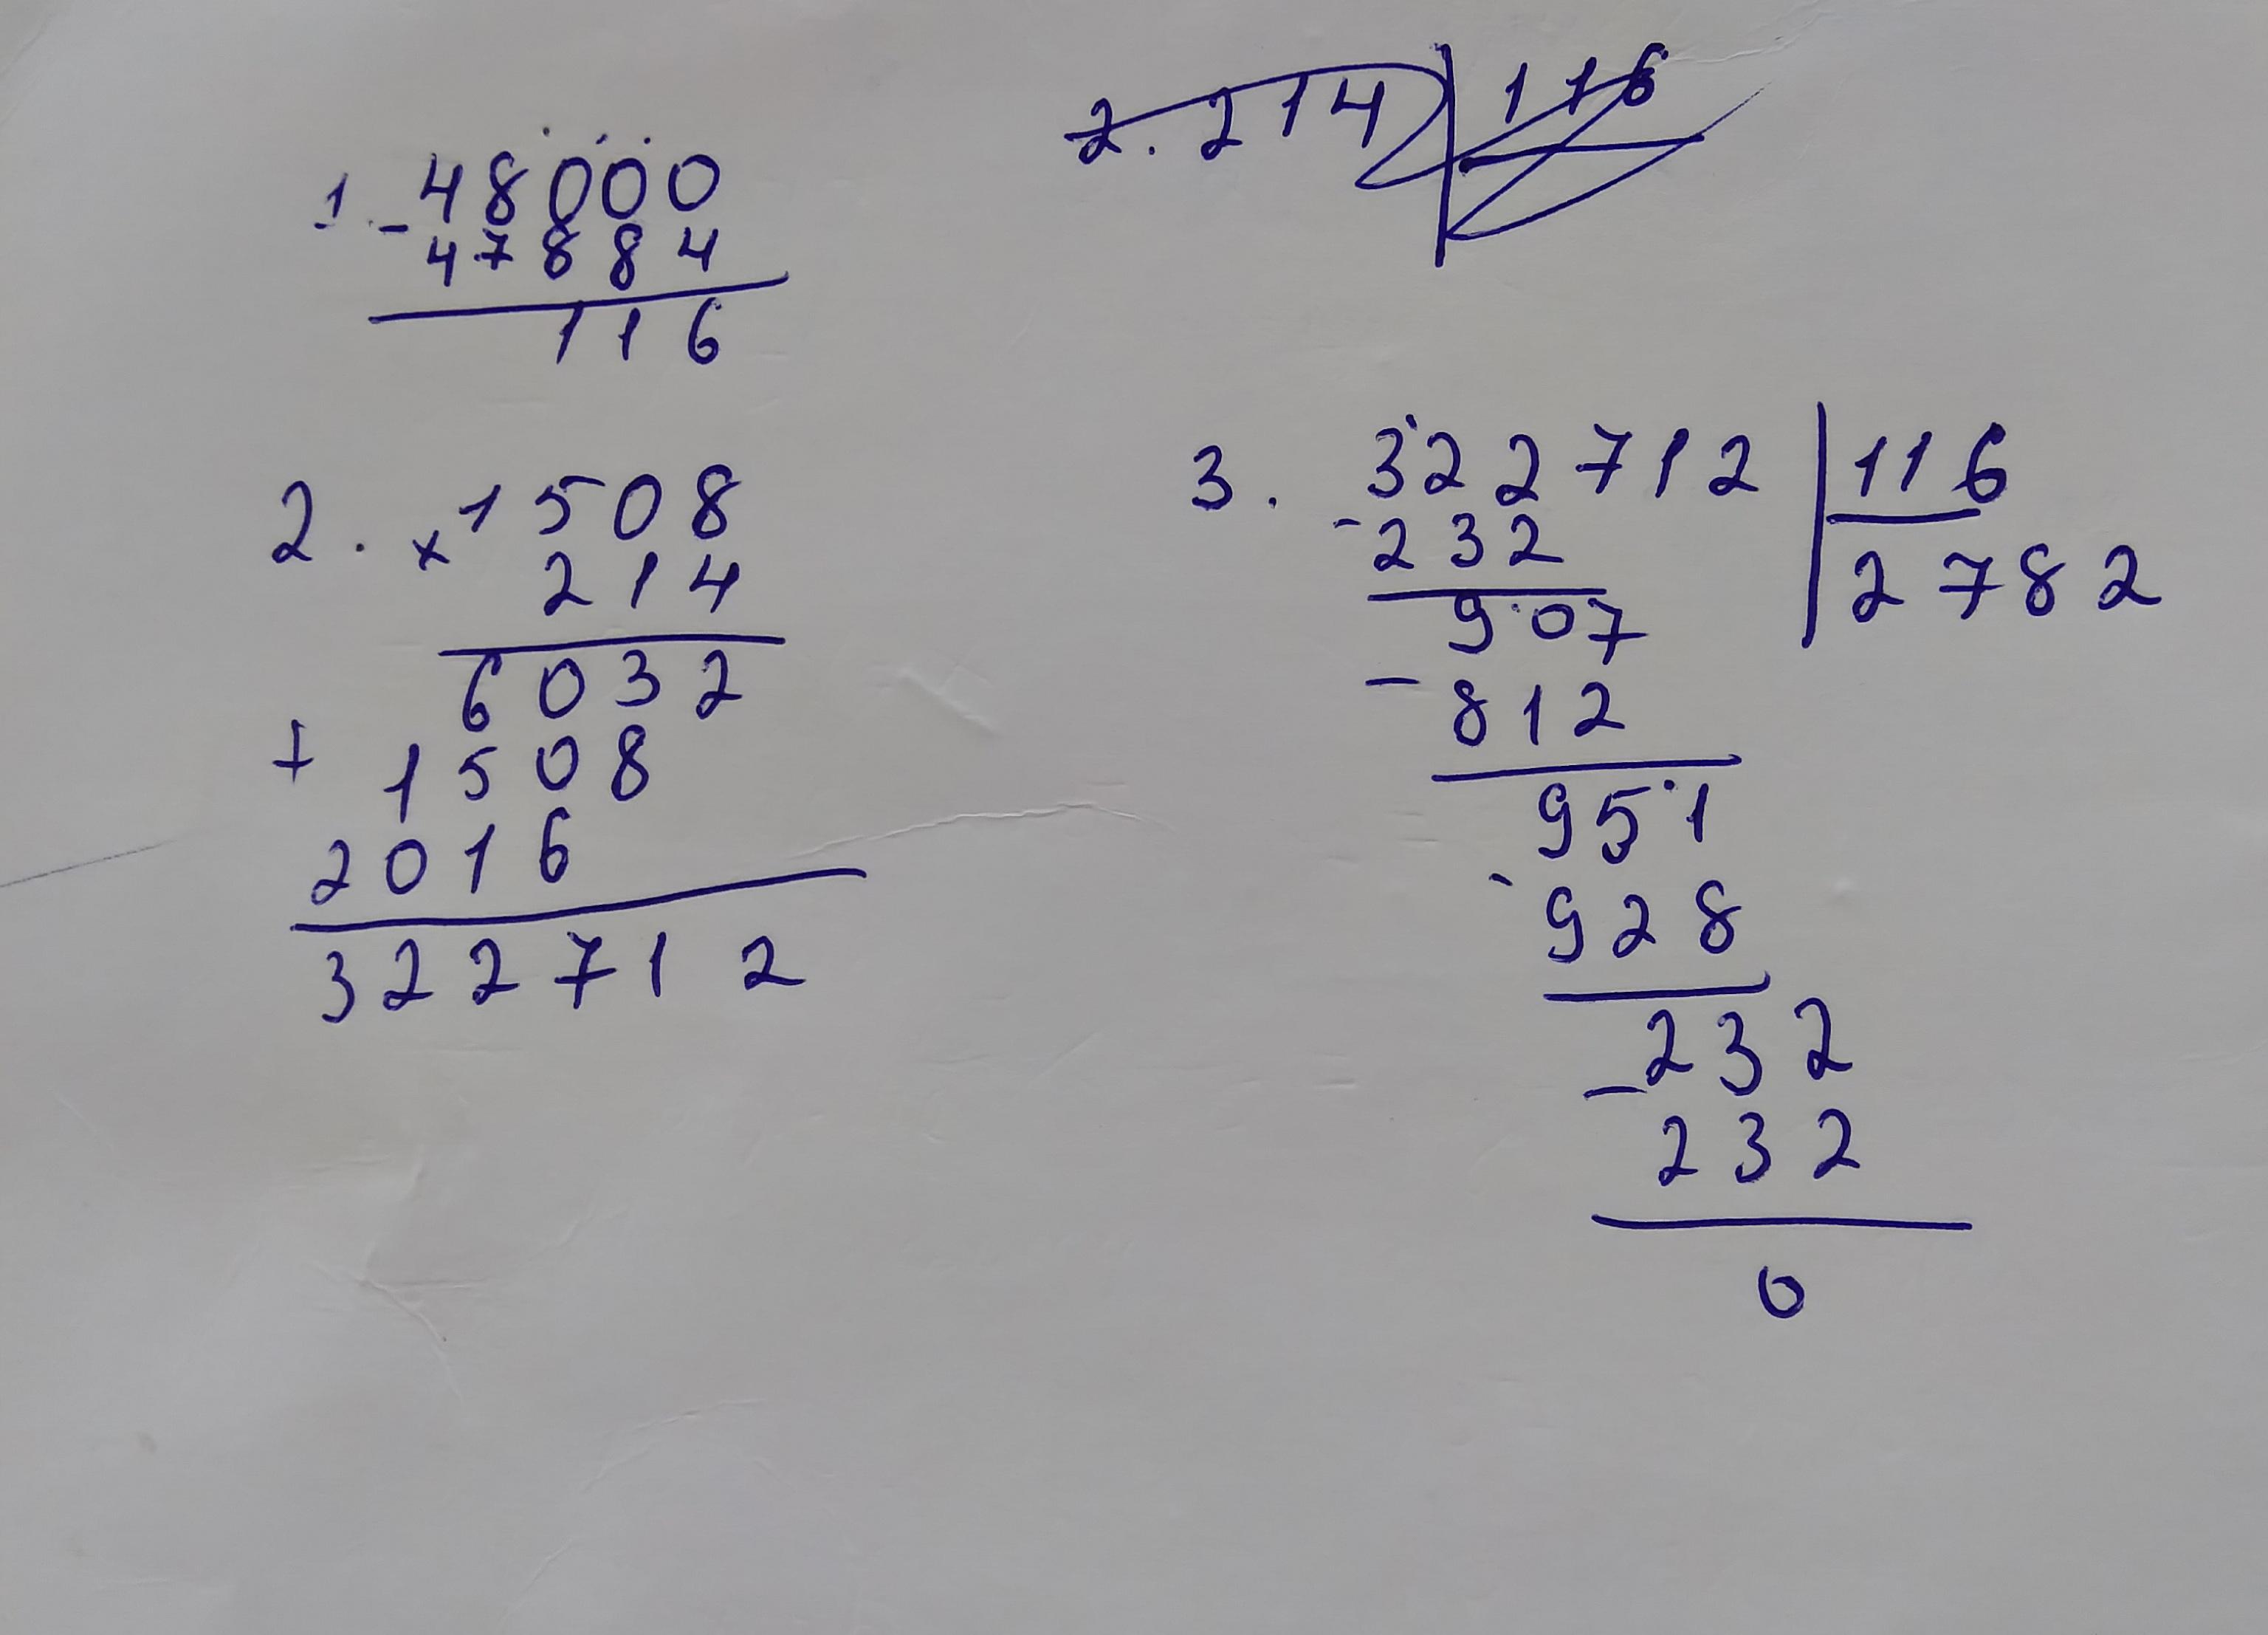 1. - 48000
47884
116
2. 214 | 116
2. x 1508
214
6032
+ 1508
2016
322712
3. 322712 | 116
- 232 | 2782
907
- 812
951
- 928
- 232
232
0